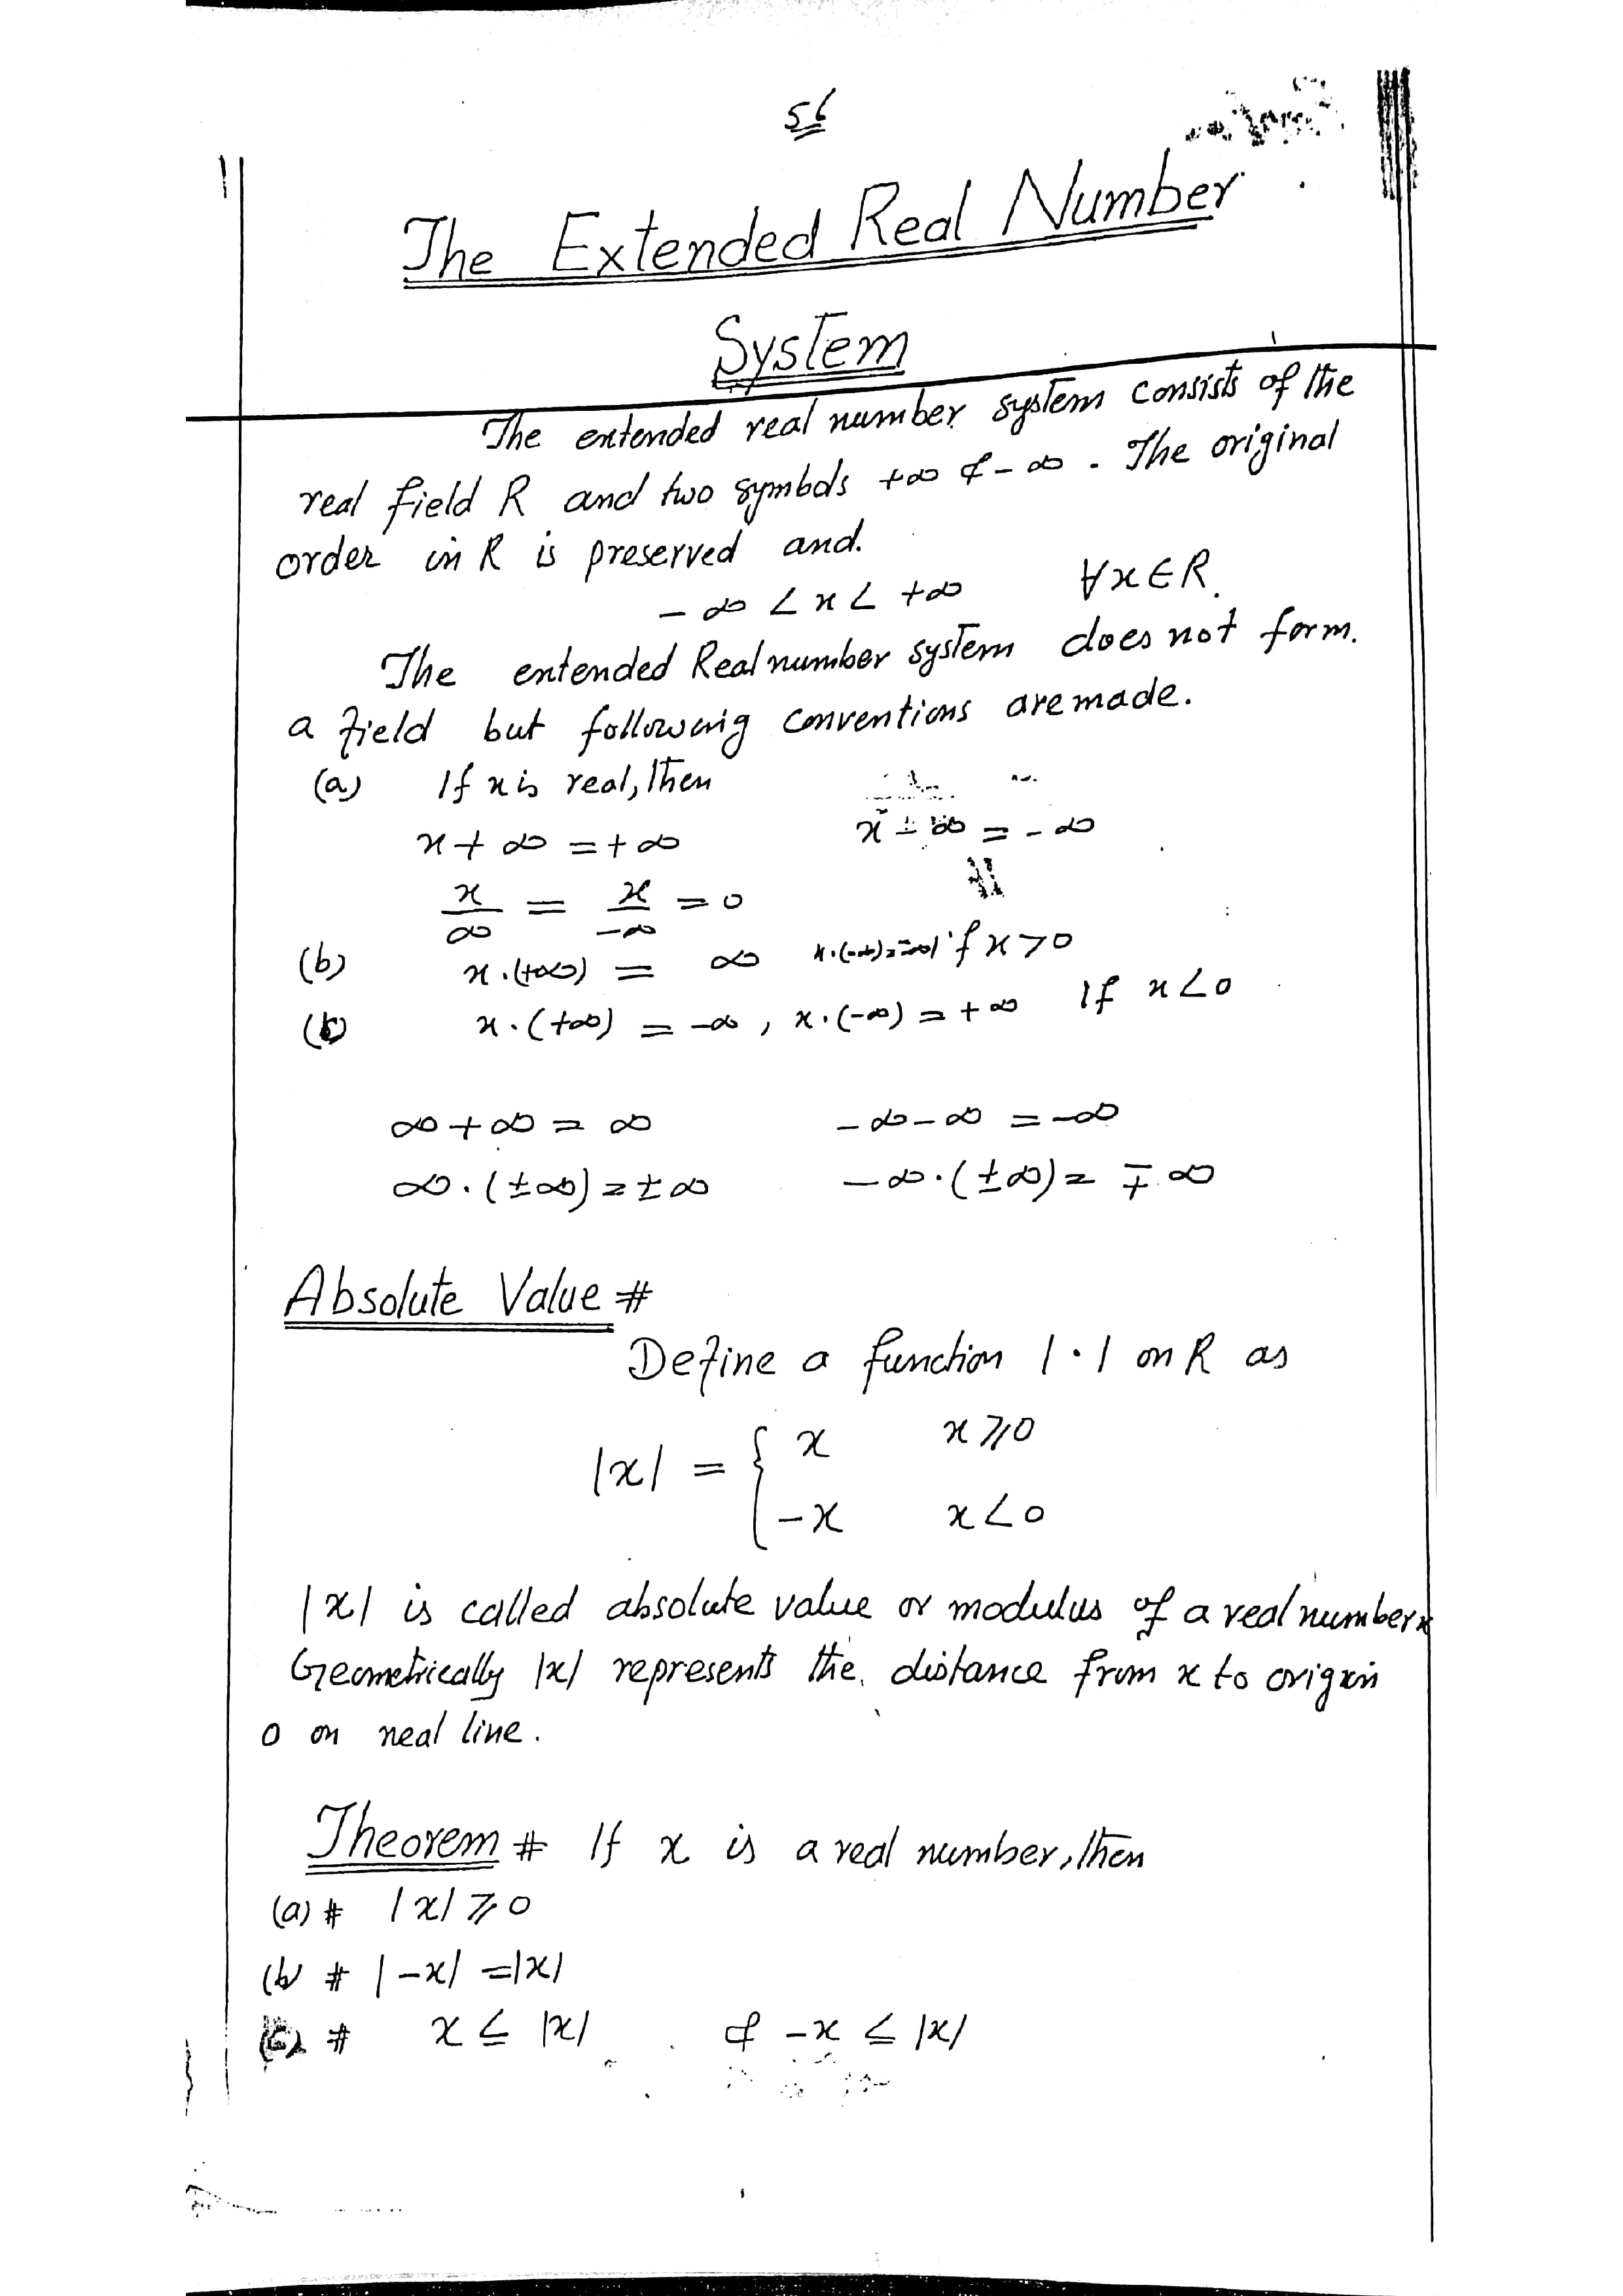 56
The Extended Real Number
System
The extended real number system consists of the
real field R and two symbols +∞ & -∞. The original
order in R is preserved and.
-∞ < x < +∞ ∀x∈R.
The extended Real number system does not form.
a field but following conventions are made.
(a) If x is real, then
x + ∞ = +∞ x - ∞ = -∞
x/∞ = x/-∞ = 0
(b) x.(+∞) = ∞ x.(-∞) = -∞ if x>0
(c) x.(+∞) = -∞, x.(-∞) = +∞ If x<0
∞+∞ = ∞ -∞-∞ = -∞
∞.(±∞) = ±∞ -∞.(±∞) = ∓∞
Absolute Value #
Define a function |·| on R as
|x| = { x x⩾0
-x x<0
|x| is called absolute value or modulus of a real number x
Geometrically |x| represents the distance from x to origin
0 on real line.
Theorem # If x is a real number, then
(a) # |x| ⩾ 0
(b) # |-x| = |x|
(c) # x ≤ |x| & -x ≤ |x|